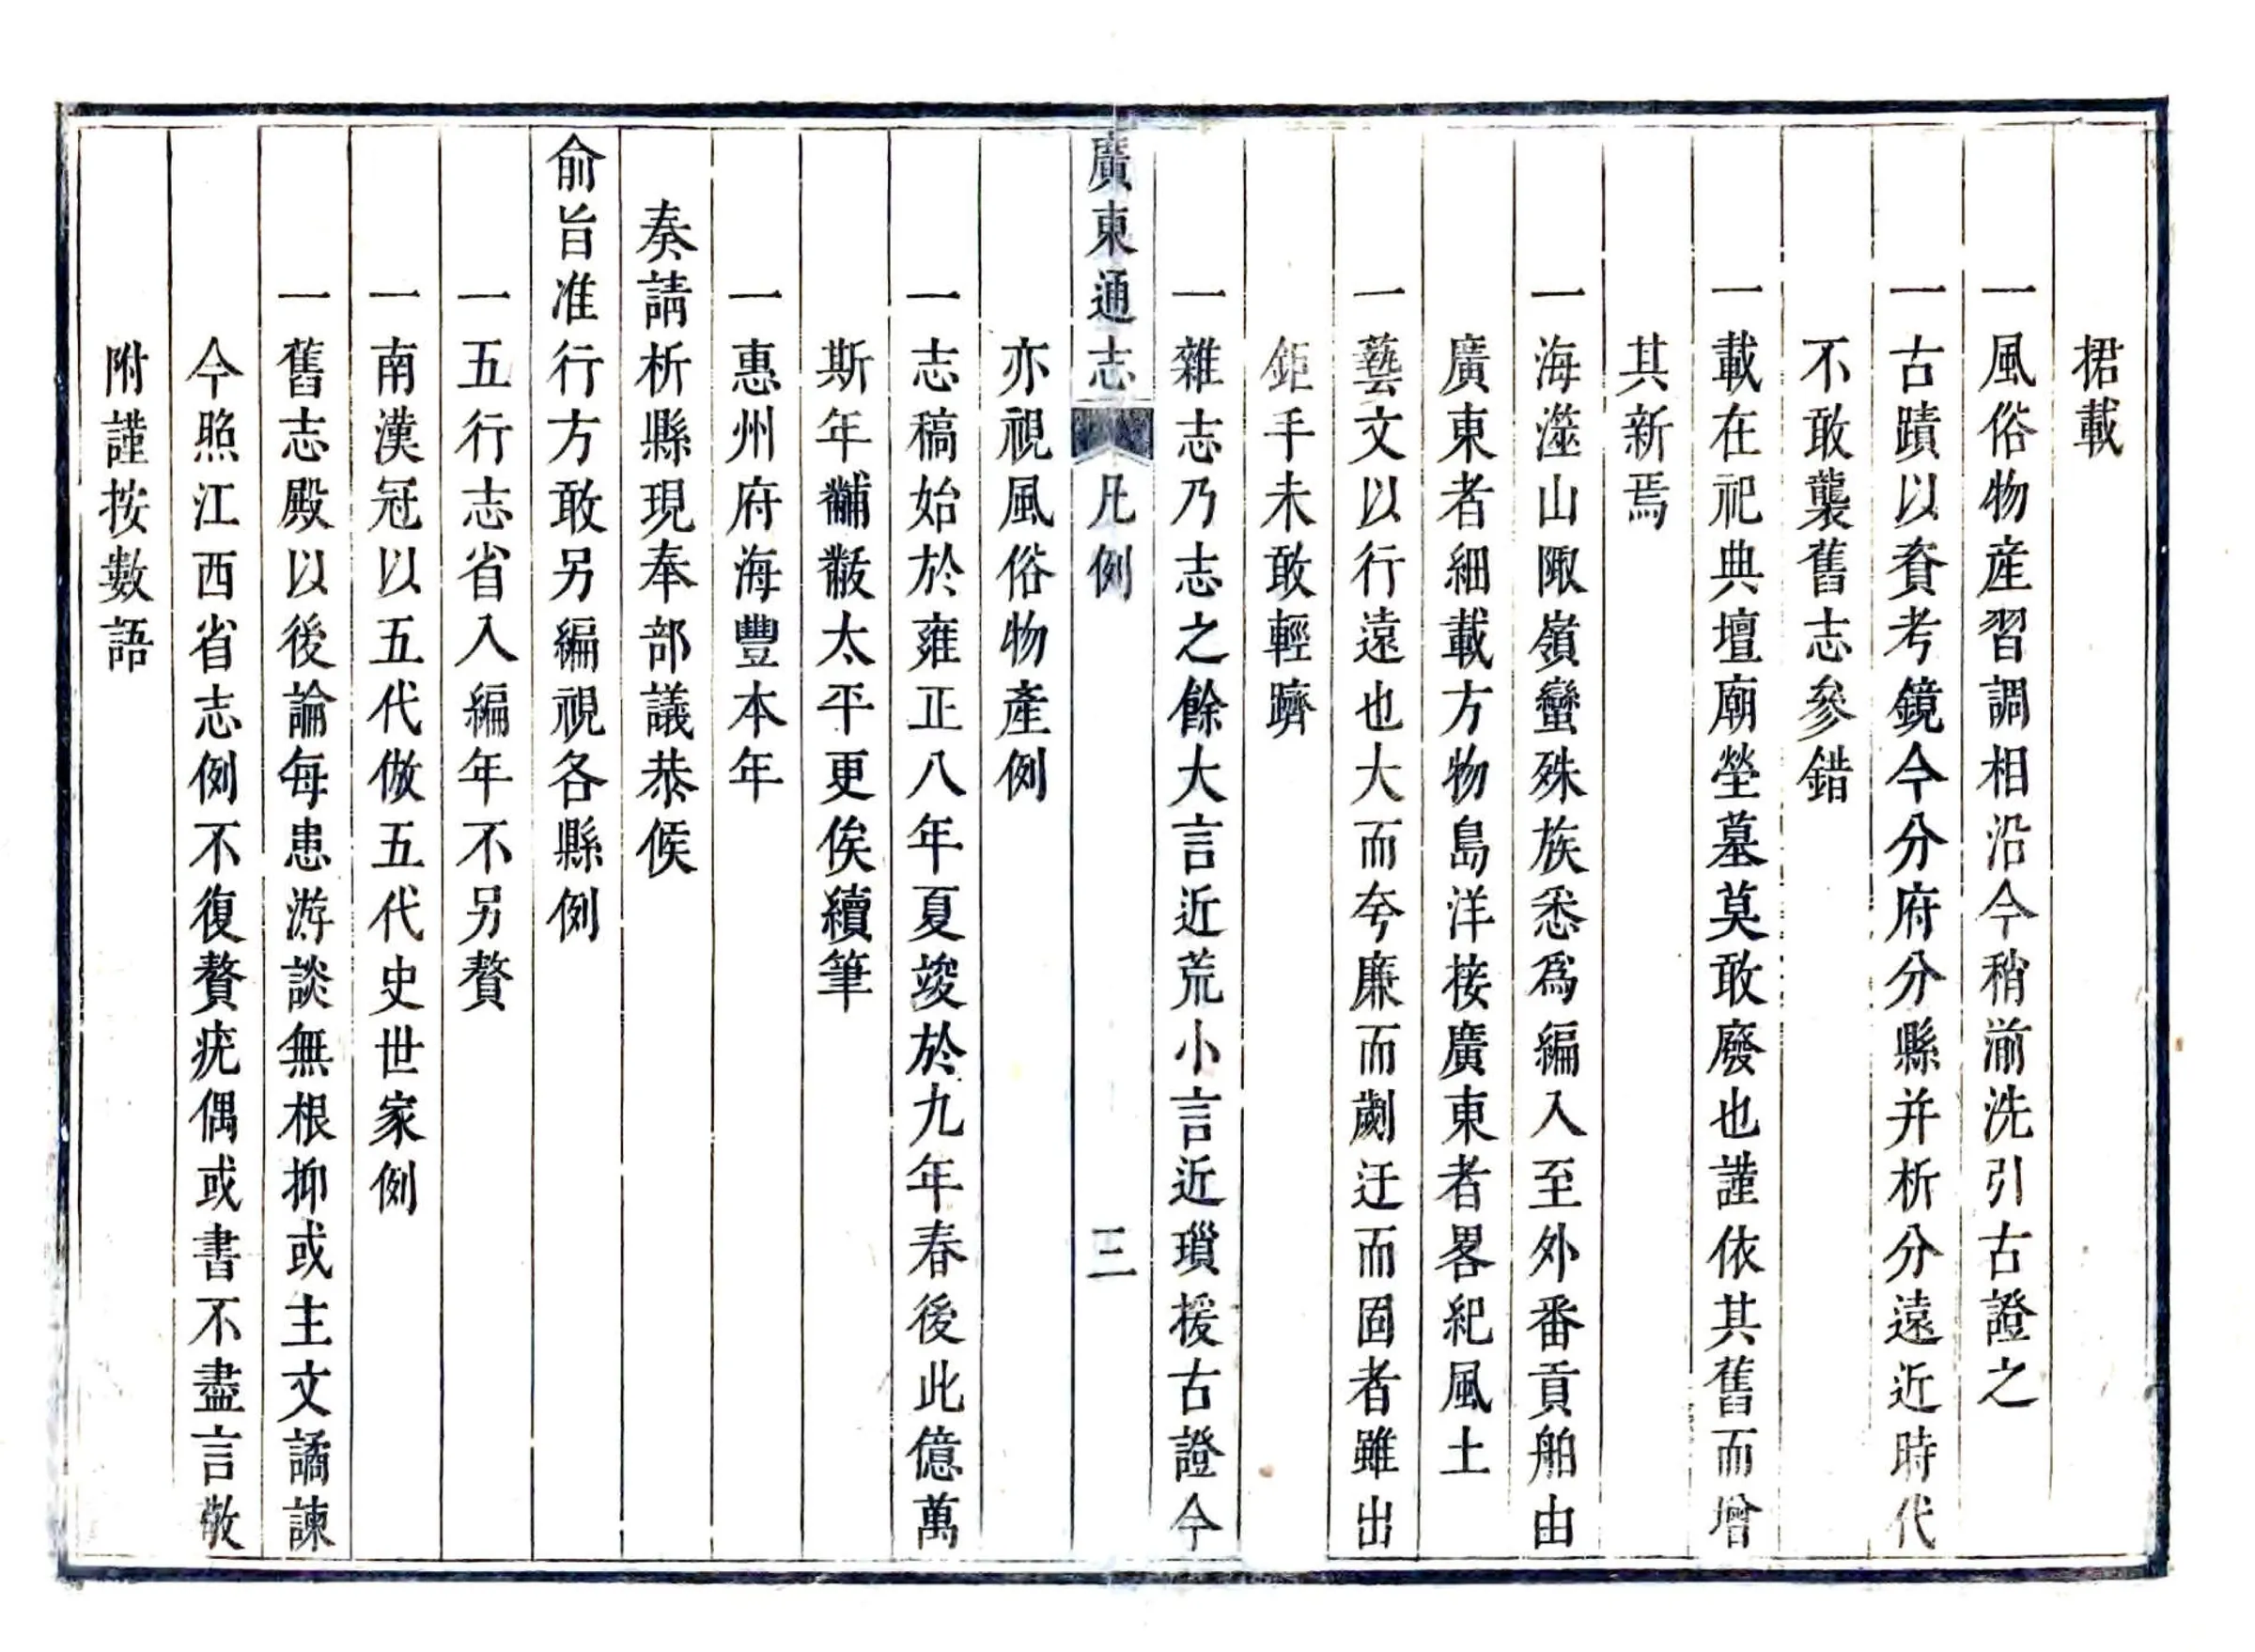 捃載
一風俗物産習調相沿今稍湔洗引古證之
一古蹟以資考鏡今分府分縣并析分遠近時代
不敢襲舊志參錯
一載在祀典壇廟塋墓莫敢廢也謹依其舊而增
其新焉
一海澨山陬嶺蠻殊族悉爲編入至外番貢舶由
廣東者細載方物島洋接廣東者畧紀風土
一藝文以行遠也大而夸廉而劌迂而固者雖出
鉅手未敢輕躋
一雜志乃志之餘大言近荒小言近瑣援古證今
廣東通志 凡例 三
亦視風俗物產例
一志稿始於雍正八年夏竣於九年春後此億萬
斯年黼黻太平更俟續筆
一惠州府海豐本年
奏請析縣現奉部議恭候
俞旨准行方敢另編視各縣例
一五行志省入編年不另贅
一南漢冠以五代倣五代史世家例
一舊志殿以後論每患游談無根抑或主文譎諫
今照江西省志例不復贅疣偶或書不盡言敬
附謹按數語